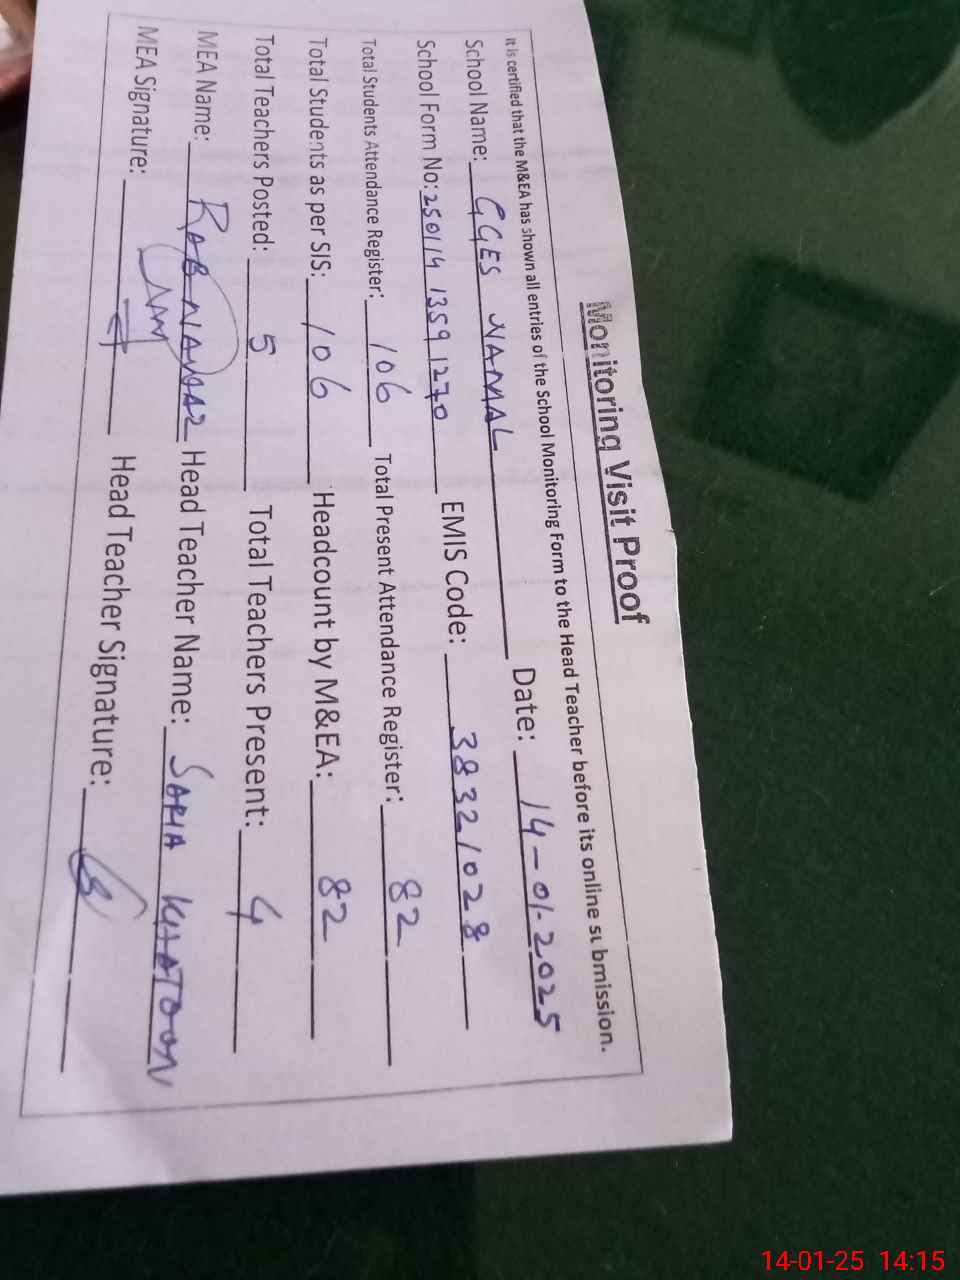 Monitoring Visit Proof
It is certified that the M&EA has shown all entries of the School Monitoring Form to the Head Teacher before its online submission.
School Name: GGES NAMAL Date: 14-01-2025
School Form No: 250114 1359 1270 EMIS Code: 38321028
Total Students Attendance Register: 106 Total Present Attendance Register: 82
Total Students as per SIS: 106 Headcount by M&EA: 82
Total Teachers Posted: 5 Total Teachers Present: 4
MEA Name: RAB NAWAZ Head Teacher Name: SAHA KHATOON
MEA Signature: Head Teacher Signature:
14-01-25 14:15